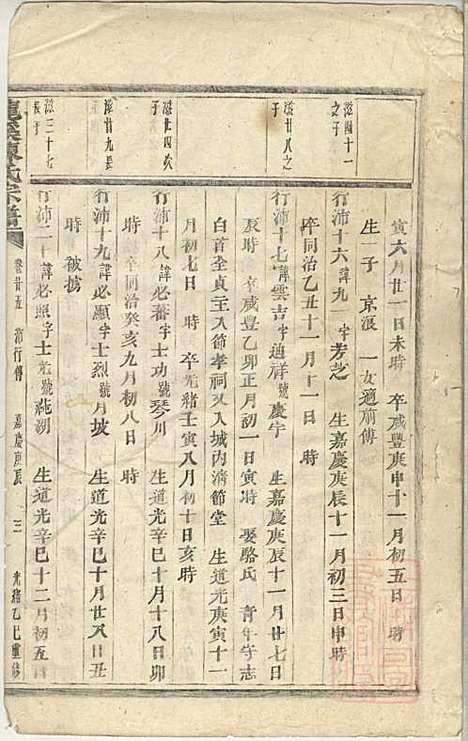 寅六月廿一日未時　卒咸豐庚申十一月初五日　時
生一子　京滾　一女適前傳
滋四十一之子
行沛十六諱九一字芳芝　生嘉慶庚辰十一月初三日申時
卒同治乙丑十一月十一日　時
滋廿八之子
行沛十七諱雲吉字適祥號慶宇　生嘉慶庚辰十一月廿七日
辰時　卒咸豐乙卯正月初一日寅時　娶駱氏　青年守志
白首全貞主入節孝祠又入城內清節堂　生道光庚寅十一
月初七日　時　卒光緒壬寅八月初十日亥時
滋廿四次子
行沛十八諱必蕃字士功號琴川　生道光辛巳十月十八日卯
時　卒同治癸亥九月初八日　時
滋廿九長子
行沛十九諱必顯字士烈號月坡　生道光辛巳十月廿八日丑
時　被擄
滋三十七長子
行沛二十諱必照字士光號蒓湖　生道光辛巳十二月初五日
陳氏宗譜　卷廿五　沛行傳　嘉慶庚辰　三　光緒乙巳重修